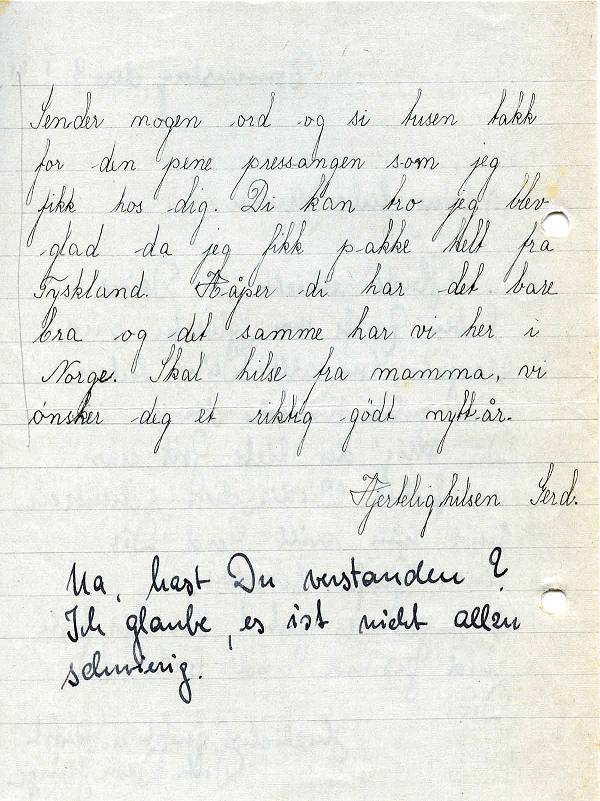 Sender nogen ord og si tusen takk
for den pene pressangen som jeg
fikk hos dig. Di kan tro jeg blev
glad da jeg fikk pakke helt fra
Tyskland. Håper di har det bare
bra og det samme har vi her i
Norge. Skal hilse fra mamma, vi
ønsker dig et riktig gödt nytt-år.
Hjertelig hilsen Gerd.
Na, hast Du verstanden?
Ich glaube, es ist nicht allzu
schwierig.